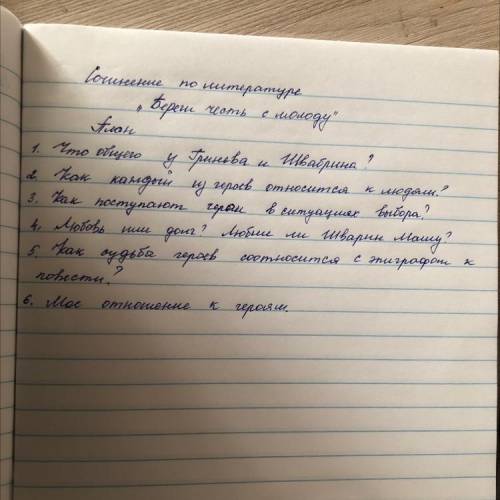 Сочинение по литературе
„Береги честь с молоду"
План
1. Что общего у Гринева и Швабрина?
2. Как каждый из героев относится к людям?
3. Как поступают герои в ситуациях выбора?
4. Любовь или долг? Любит ли Шварин Машу?
5. Как судьба героев соотносится с эпиграфом к
повести?
6. Мое отношение к героям.